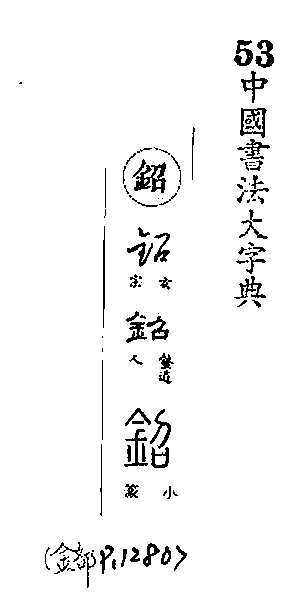 53
中國書法大字典
鉊
鉊
玄宗
鉊
鉊
小篆
(金部P.1280)